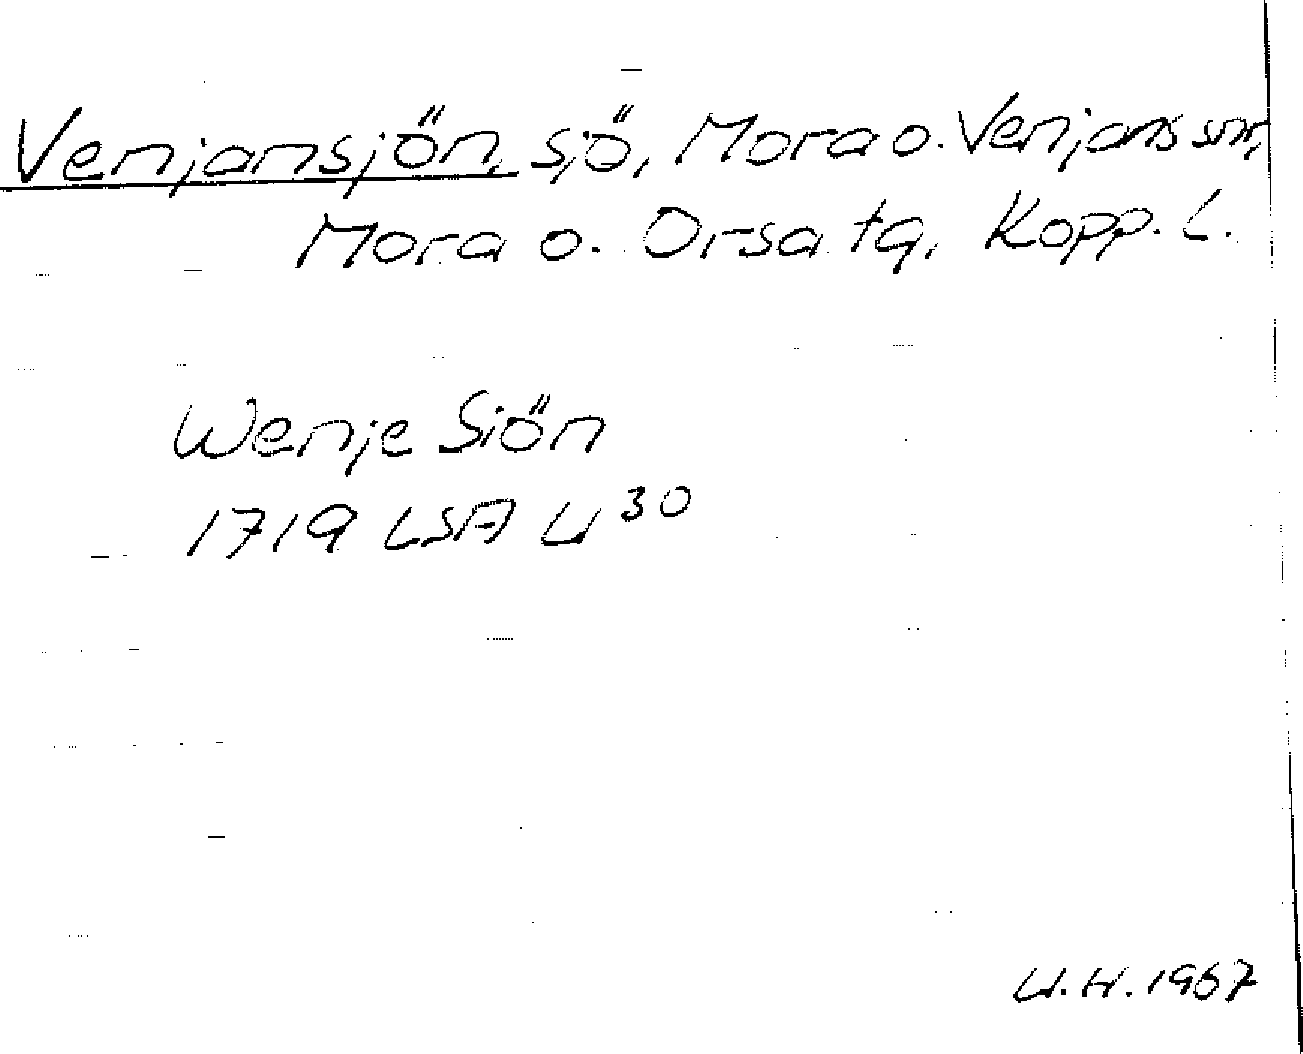 Venjansjön, sjö, Mora o. Venjans snr,
Mora o. Orsa tg, Kopp. L.
Wenje Siön
1719 LSA U 30
U.H. 1967